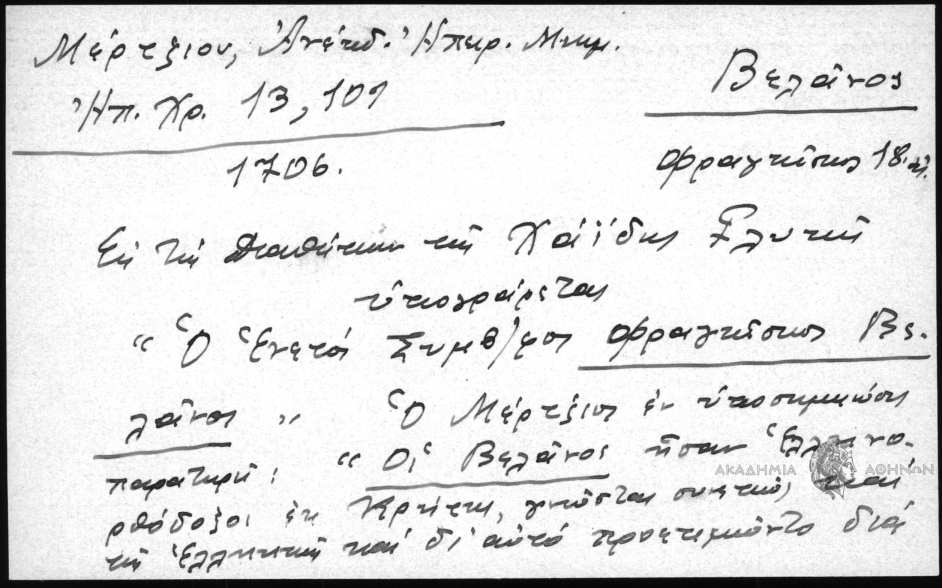 Μέρτζιου, Ἀνέκδ. Ἠπειρ. Μνημ.
Ἠπ. Χρ. 13, 109
Βελάνος
1706.
Φραγκῖσκος 18. αἰ.
Εἰς τὴν διαθήκην τῆς Χάϊδης Γλυκῆ
ὑπογράφεται
"Ὁ Ἑνετὸς Συμβ/φος Φραγκῖσκος Βε-
λᾶνος" Ὁ Μέρτζιος ἐν ὑποσημειώσει
παρατηρεῖ: "Οἱ Βελᾶνος ἦσαν Ἑλληνο-
ρθόδοξοι ἐκ Κρήτης, γνῶσται συνεπῶς καὶ
τῆς Ἑλληνικῆς καὶ δι' αὐτὸ προετιμῶντο διὰ
ΑΚΑΔΗΜΙΑ ΑΘΗΝΩΝ